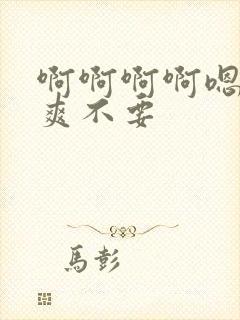 啊啊啊啊嗯
爽不要
馬彭